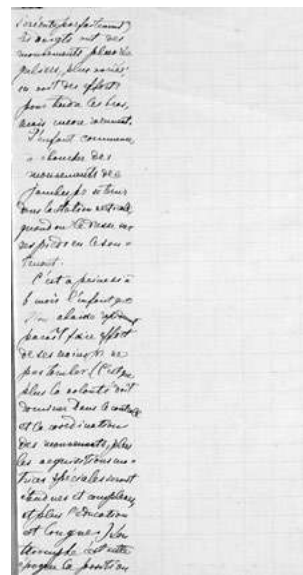 s'oriente parfaitement)
les doigts ont des
mouvements plus ré
guliers, plus variés,
on voit des efforts
pour tendre les bras,
mais encore rarement.
L'enfant commence
à ébaucher des
mouvements des
jambes
dans la station verticale,
quand on le dresse sur
ses pieds en le sou-
tenant.
C'est à peine si à
6 mois l'enfant
paraît faire effort
de ses mains ne
pas tomber (C'est que
plus la volonté doit
dominer dans le contrôle
et la coordination
des mouvements, plus
les acquisitions mo-
trices spéciales seront
étendues et complexes,
et plus l'éducation
est longue).
c'est à cette
époque la position